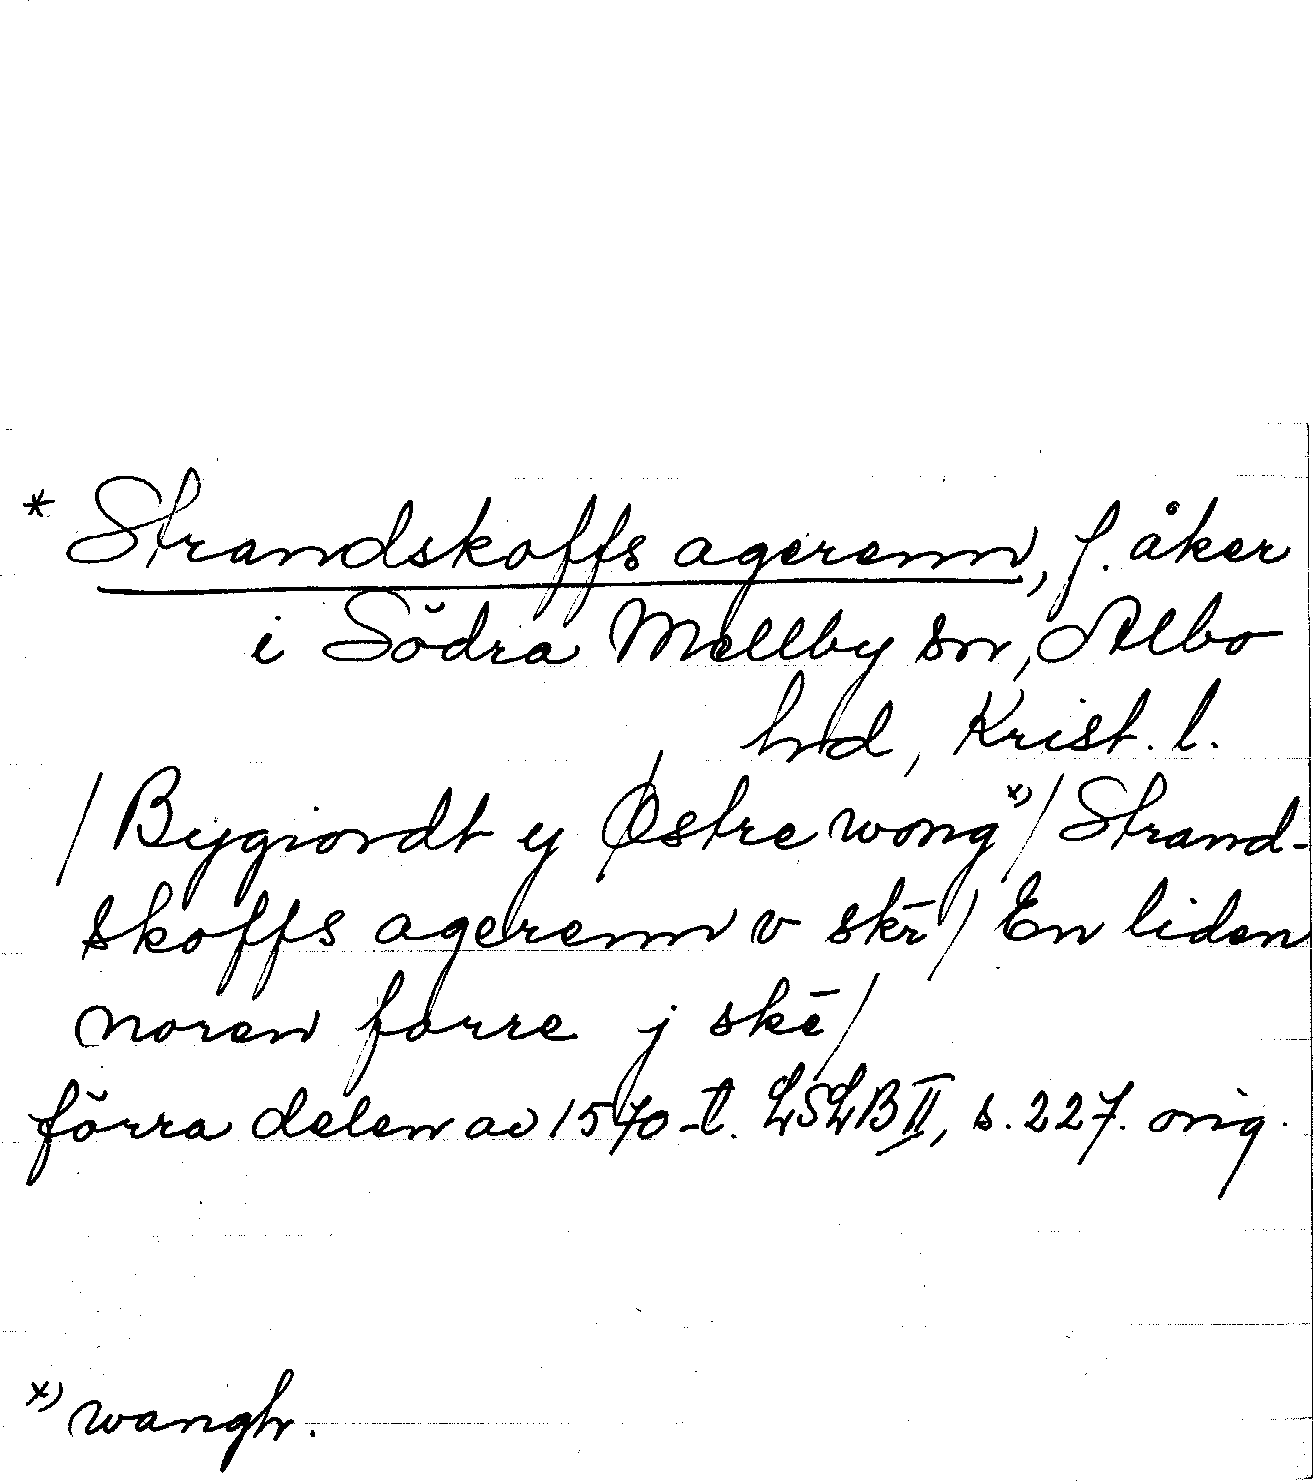 * Strandskoffs agerenn, f. åker
i Södra Mellby sn, Albo
hd, Krist. l.
/ Bygiordt y Østre wong x) / Strand-
skoffs agerenn v skē / En liden
noren forre j skē /
förra delen av 1570-t. LSLB II, s. 227. orig.
x) wangh.